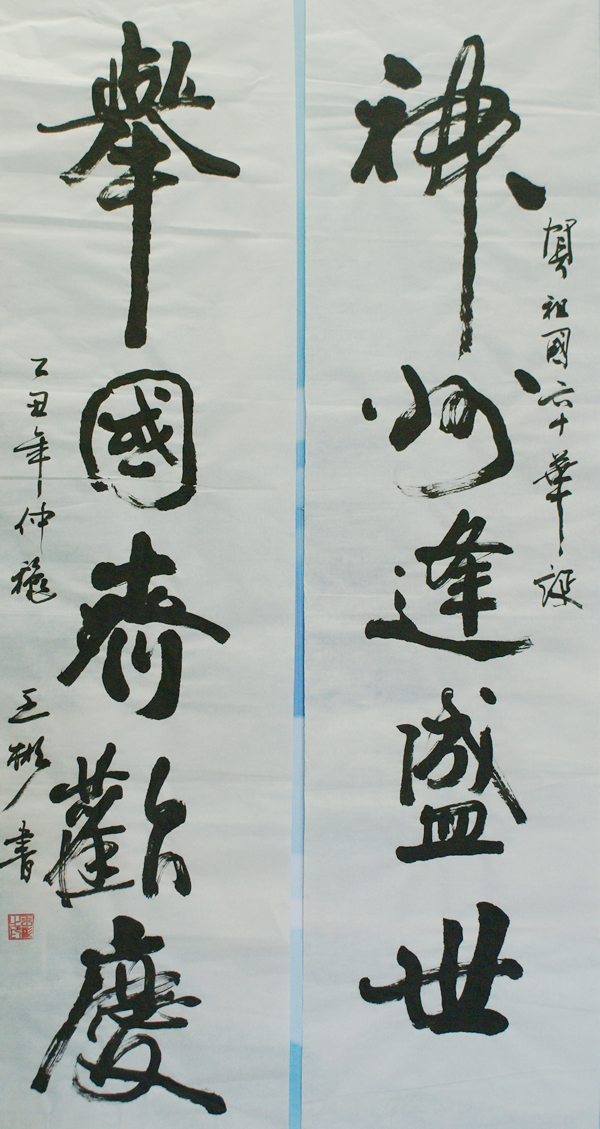 賀祖國六十華誕
神州逢盛世
舉國齊歡慶
己丑年仲穐
王彬書